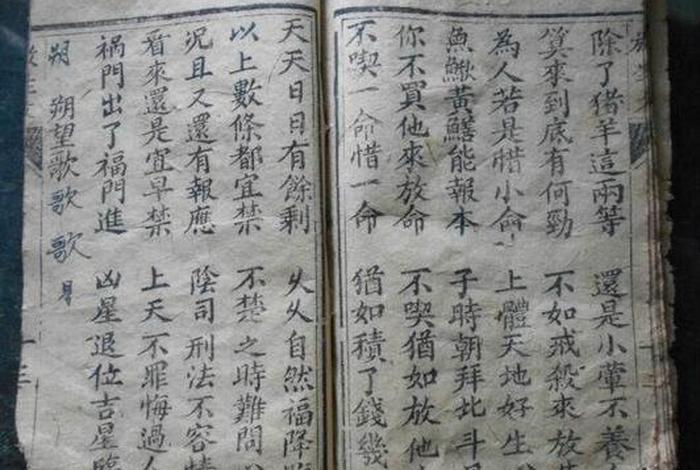 除了猪羊這兩等 還是小葷不養
筭來到底有何勁 不如戒殺來放
為人若是惜小命 上體天地好生
魚鰍黃鱔能報本 子時朝拜北斗
你不買他來放命 不喫猶如放他
不喫一命惜一命 猶如積了錢幾
天天日日有餘剩 久久自然福降
以上數條都宜禁 不楚之時難問
況且又還有報應 陰司刑法不容情
看來還是宜早禁 上天不罪悔過人
禍門出了福門進 凶星退位吉星臨
朔 朔望歌歌 歌